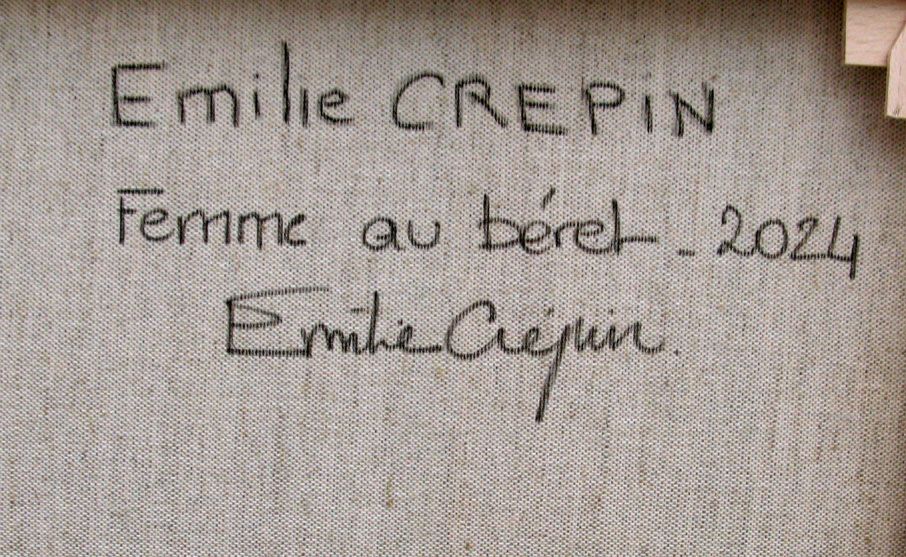 Emilie CREPIN
Femme au béret - 2024
Emilie Crépin.